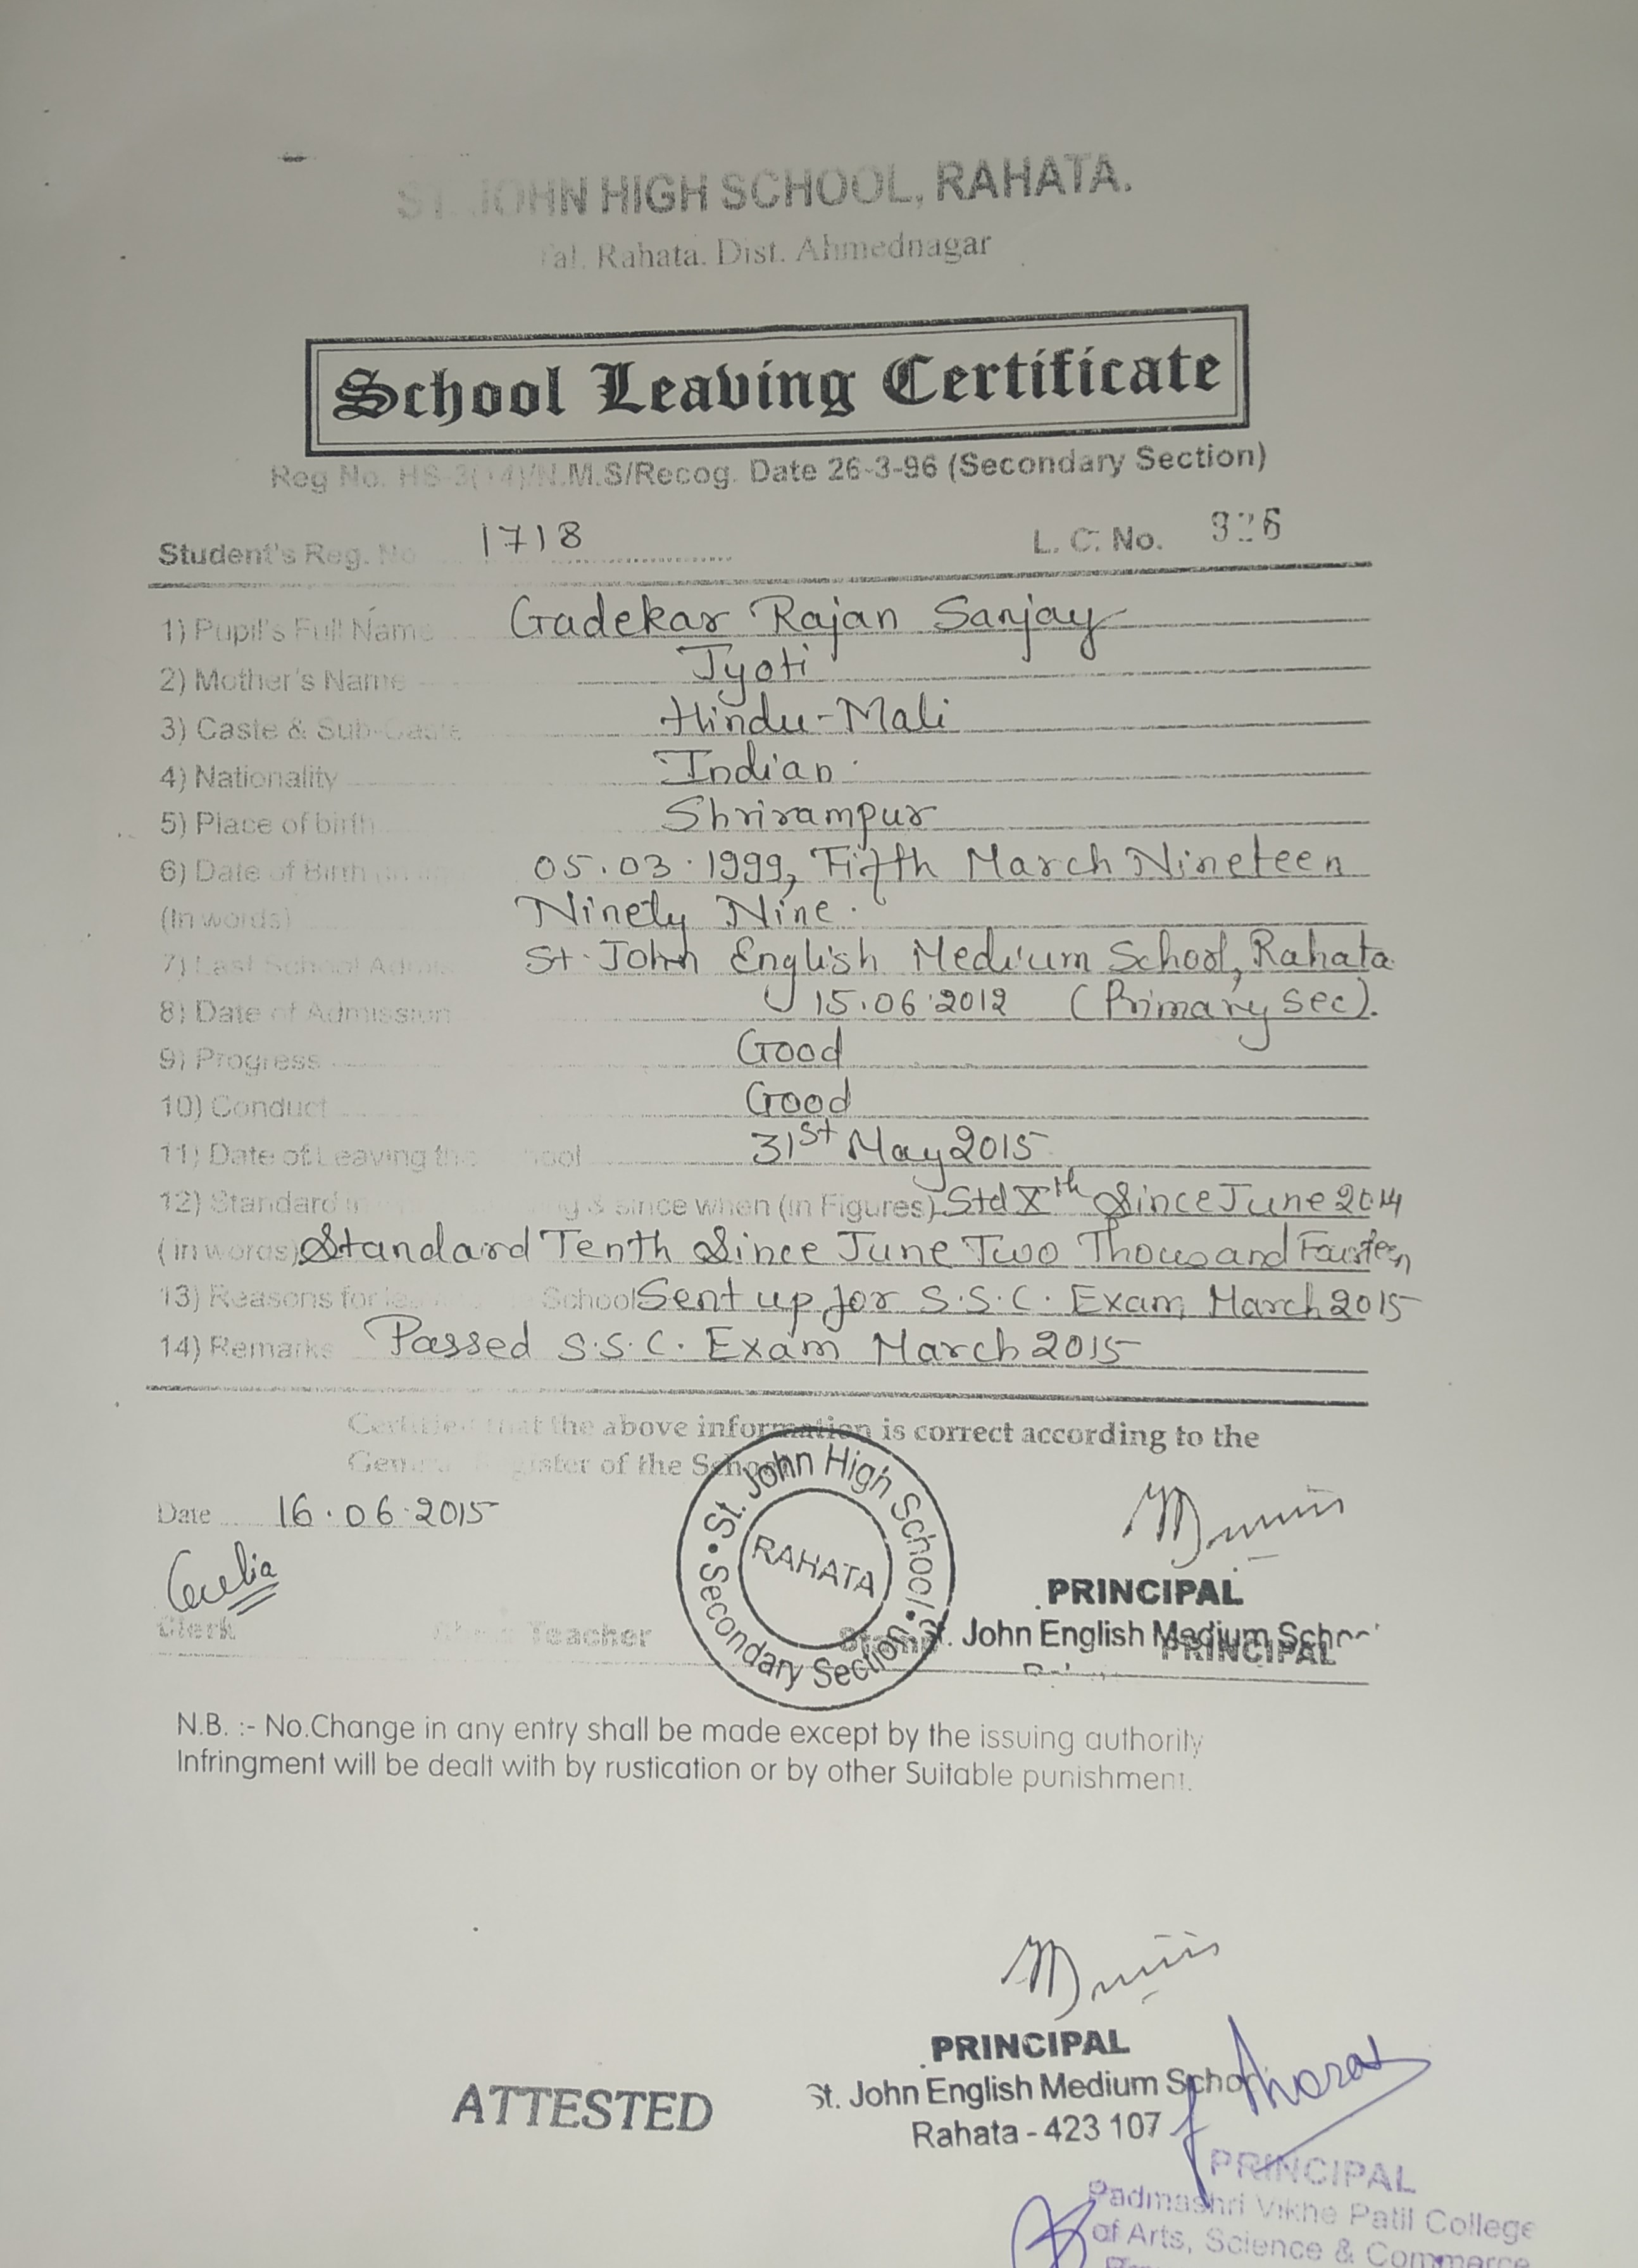 ST. JOHN HIGH SCHOOL, RAHATA.
Tal. Rahata. Dist. Ahmednagar
School Leaving Certificate
Reg No. HS-3(14)/N.M.S/Recog. Date 26-3-96 (Secondary Section)
Student's Reg. No 1718 L. C. No. 926
1) Pupil's Full Name Gadekar Rajan Sanjay
2) Mother's Name Jyoti
3) Caste & Sub-Caste Hindu-Mali
4) Nationality Indian.
5) Place of birth Shrirampur
6) Date of Birth 05.03.1999, Fifth March Nineteen
(In words) Ninety Nine.
7) Last School St. John English Medium School, Rahata
8) Date of Admission 15.06.2012 (Primary Sec).
9) Progress Good
10) Conduct Good
11) Date of Leaving the School 31st May 2015
12) Standard & since when (in Figures) Std Xth Since June 2014
(in words) Standard Tenth Since June Two Thousand Fourteen
13) Reasons for School Sent up for S.S.C. Exam March 2015
14) Remarks Passed S.S.C. Exam March 2015
Certified that the above information is correct according to the
General Register of the School
Date 16.06.2015
St. John High School
Secondary Section
RAHATA
PRINCIPAL
St. John English Medium School
Clerk Teacher Stamp PRINCIPAL
N.B. :- No.Change in any entry shall be made except by the issuing authority
Infringment will be dealt with by rustication or by other Suitable punishment.
PRINCIPAL
St. John English Medium School
Rahata - 423 107
ATTESTED
PRINCIPAL
Padmashri Vikhe Patil College
of Arts, Science & Commerce